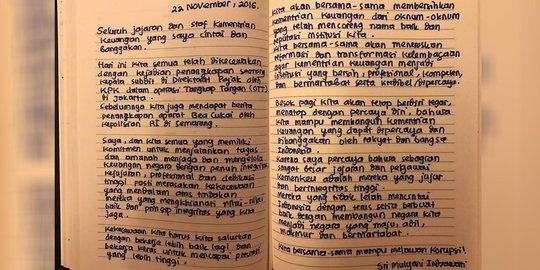 22 November, 2016.
Seluruh jajaran dan staf Kementrian
Keuangan yang saya cintai dan
banggakan.
Hari ini kita semua telah dikecewakan
dengan kejadian penangkapan seorang
kepala subdit di Direktorat Pajak oleh
KPK dalam operasi Tangkap Tangan (OTT)
di Jakarta.
Sebelumnya kita juga mendapat berita
penangkapan aparat Bea Cukai oleh
kepolisian RI di Semarang.
Saya, dan kita semua yang memiliki
komitmen untuk menjalankan tugas
dan amanah menjaga dan mengelola
keuangan negara dengan penuh integritas
kejujuran, profesional dan dedikasi
tinggi pasti merasakan kekecewaan
yang mendalam atas tindakan
mereka yang mengkhianati nilai-nilai
baik dan prinsip integritas yang kita
jaga.
Kekecewaan kita harus kita salurkan
dengan bekerja lebih baik lagi dan
bekerja keras untuk mencapai prestasi
yang lebih tinggi.
Kita akan bersama-sama membersihkan
Kementrian Keuangan dari oknum-oknum
yang telah mencoreng nama baik dan
reputasi institusi kita.
Kita akan bersama-sama meneruskan
reformasi dan transformasi kelembagaan
agar Kementrian Keuangan menjadi
institusi yang bersih, profesional, kompeten,
dan bermartabat serta kredibel/dipercaya.
Besok pagi kita akan tetap berdiri tegar,
menatap dengan percaya diri, bahwa
kita mampu membangun kementrian
keuangan yang dapat dipercaya dan
dibanggakan oleh rakyat dan bangsa
Indonesia.
Karena saya percaya bahwa sebagian
sangat besar jajaran dan pegawai
Kemenkeu adalah mereka yang jujur
dan berintegritas tinggi.
Mereka yang tidak lelah mencintai
Indonesia dengan terus setia berbuat
baik dengan membangun negara kita
menjadi negara yang maju, adil,
makmur dan bermartabat.
Kita bersama-sama mampu melawan korupsi!.
Sri Mulyani Indrawati